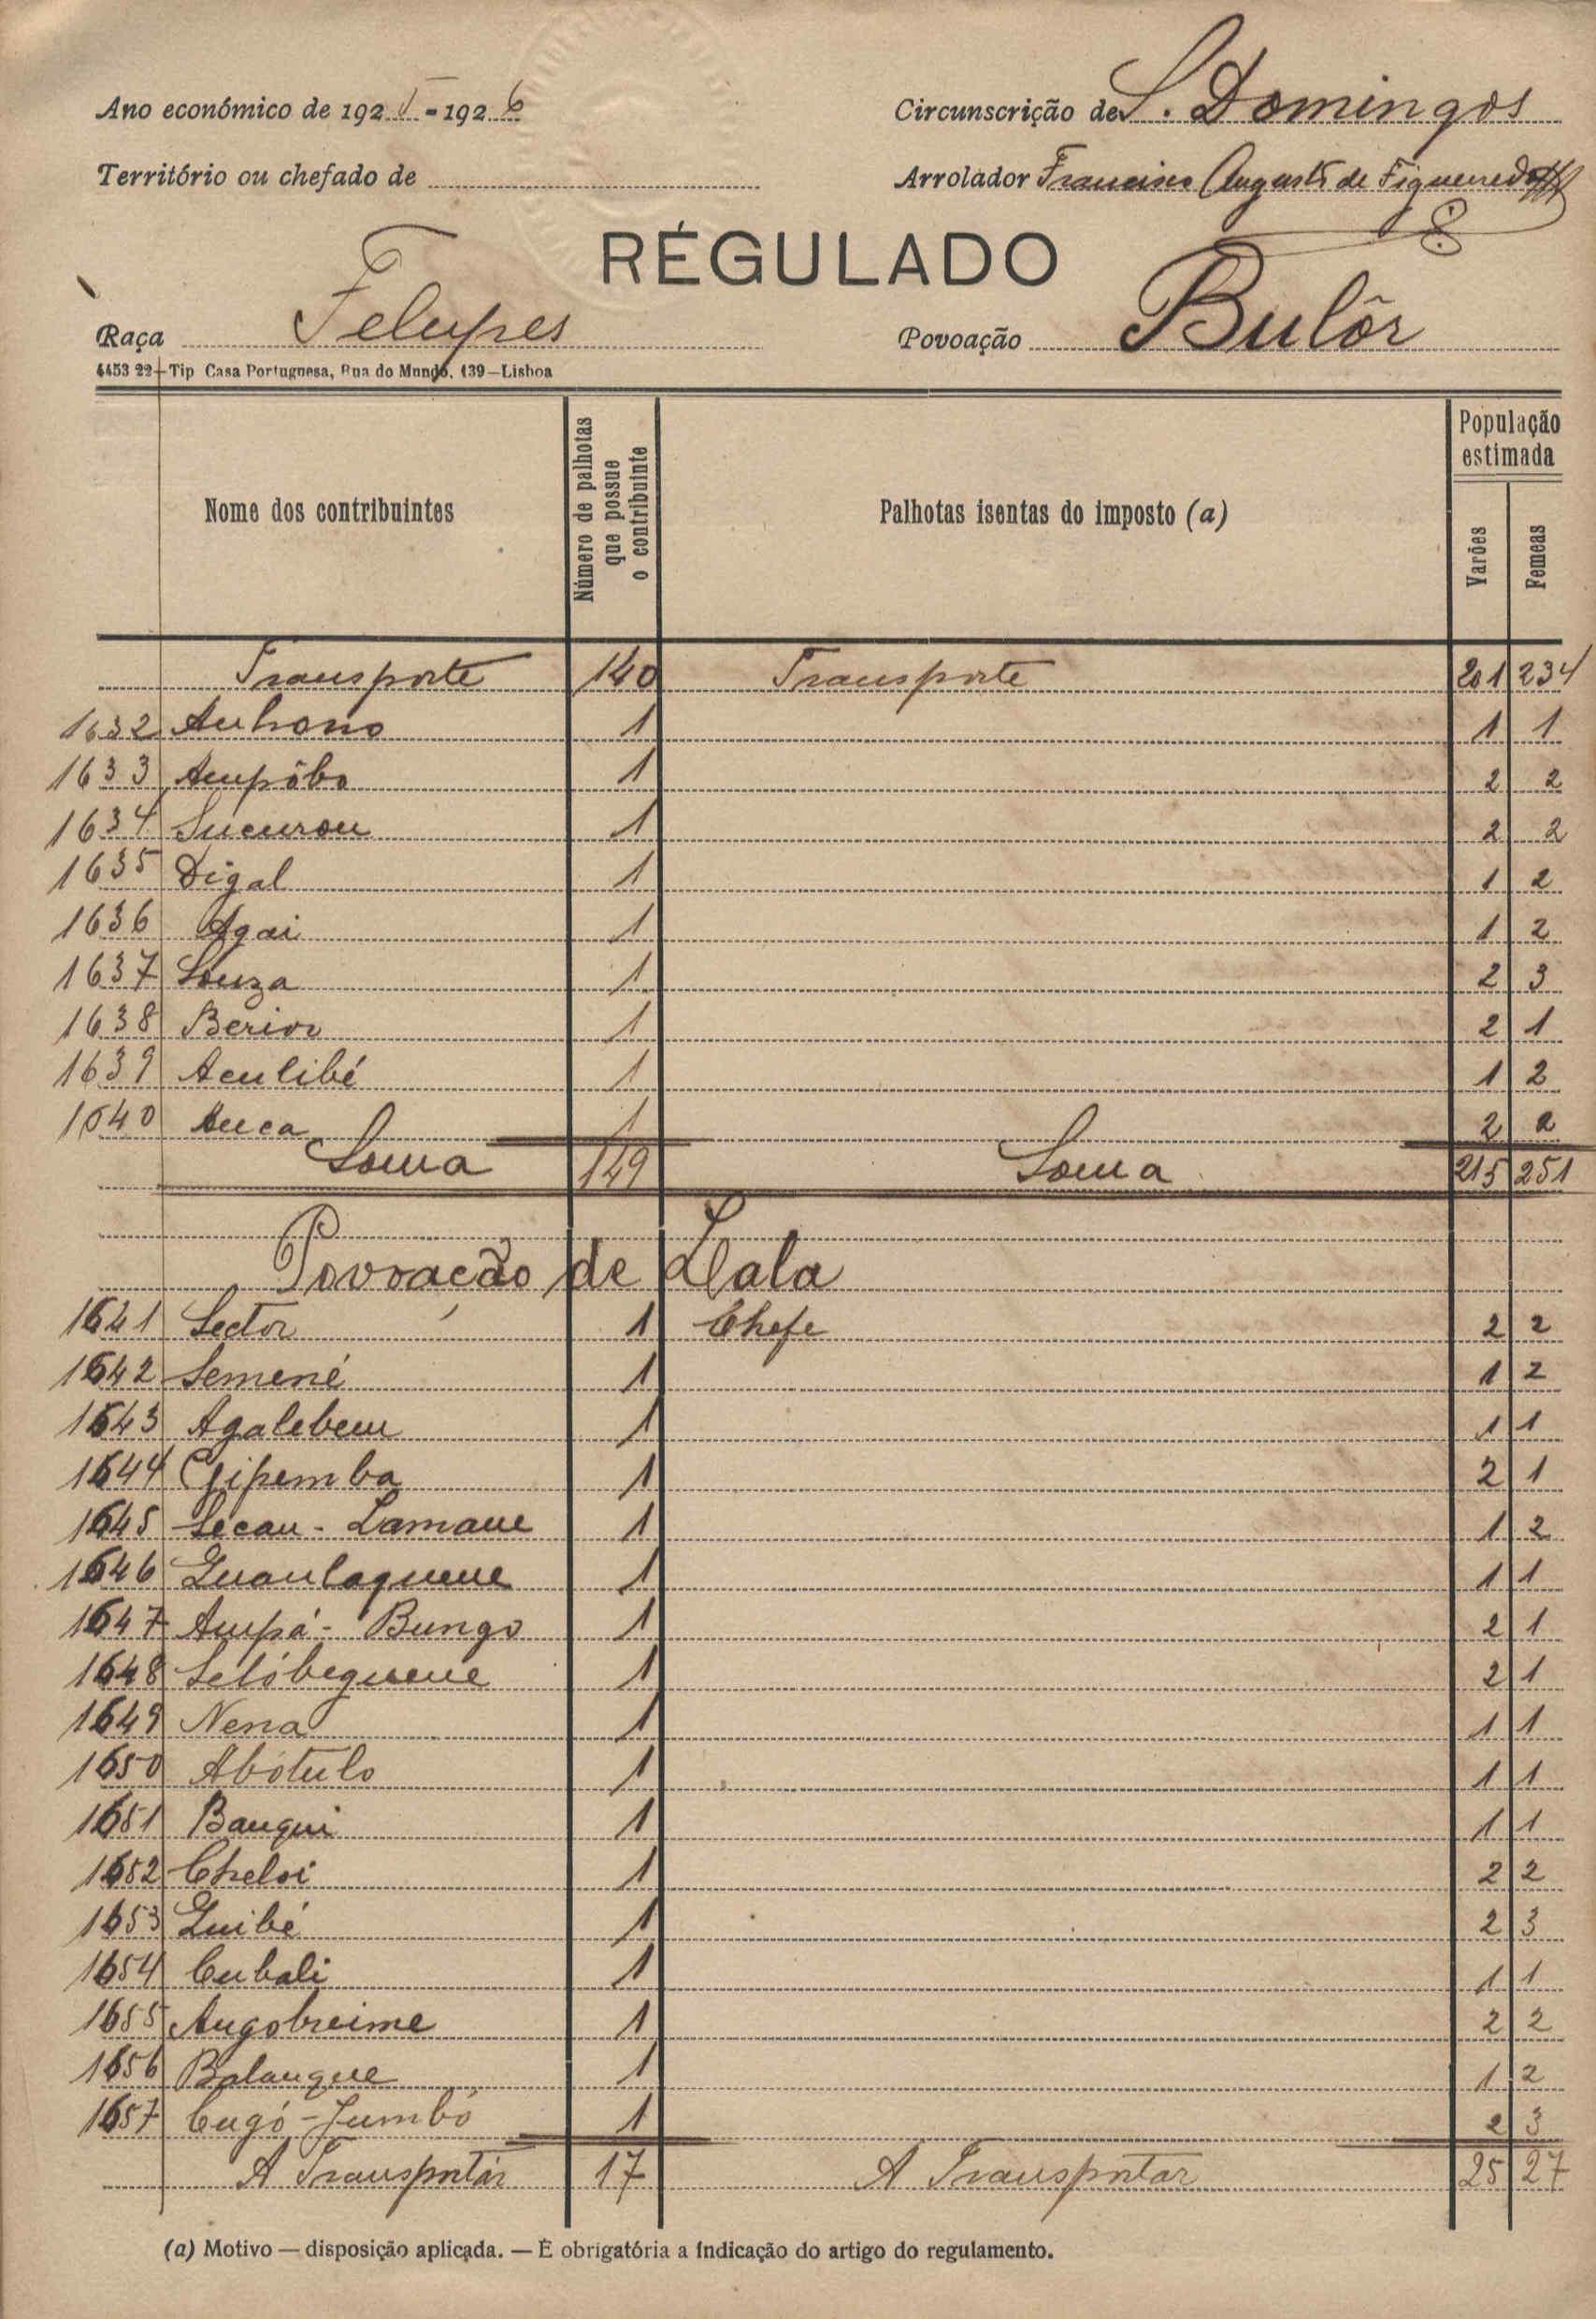 Ano económico de 1925-1926
Circunscrição de S. Domingos
Território ou chefado de
Arrolador Francisco Augusto de Figueiredo
RÉGULADO
Raça Felupes
Povoação Bulôr
4453 22 - Tip Casa Portuguesa, Rua do Mundo, 139—Lisboa
Nome dos contribuintes
Número de palhotas que possue o contribuinte
Palhotas isentas do imposto (a)
População estimada
Varões
Femeas
Transporte 140 Transporte 201 234
1632 Auhono 1 1 1
1633 Ampôbo 1 2 2
1634 Sucurou 1 2 2
1635 Digal 1 1 2
1636 Agai 1 1 2
1637 Souza 1 2 3
1638 Berior 1 2 1
1639 Aculibé 1 1 2
1640 Auca 1 2 2
Soma 149 Soma 215 251
Povoacão de Lala
1641 Sector 1 Chefe 2 2
1642 Semené 1 1 2
1643 Agalebem 1 1 1
1644 Gipemba 1 2 1
1645 Secau - Lamane 1 1 2
1646 1 1 1
1647 Ampá - Bungo 1 2 1
1648 Selóbequene 1 2 1
1649 Nena 1 1 1
1650 Abótulo 1 1 1
1651 Bauqui 1 1 1
1652 Cheloi 1 2 2
1653 Guibé 1 2 3
1654 Cubali 1 1 1
1655 Augobreime 1 2 2
1656 Balangue 1 1 2
1657 Cugó - Jumbó 1 2 3
A Transportar 17 A Transportar 25 27
(a) Motivo — disposição aplicada. — É obrigatória a indicação do artigo do regulamento.